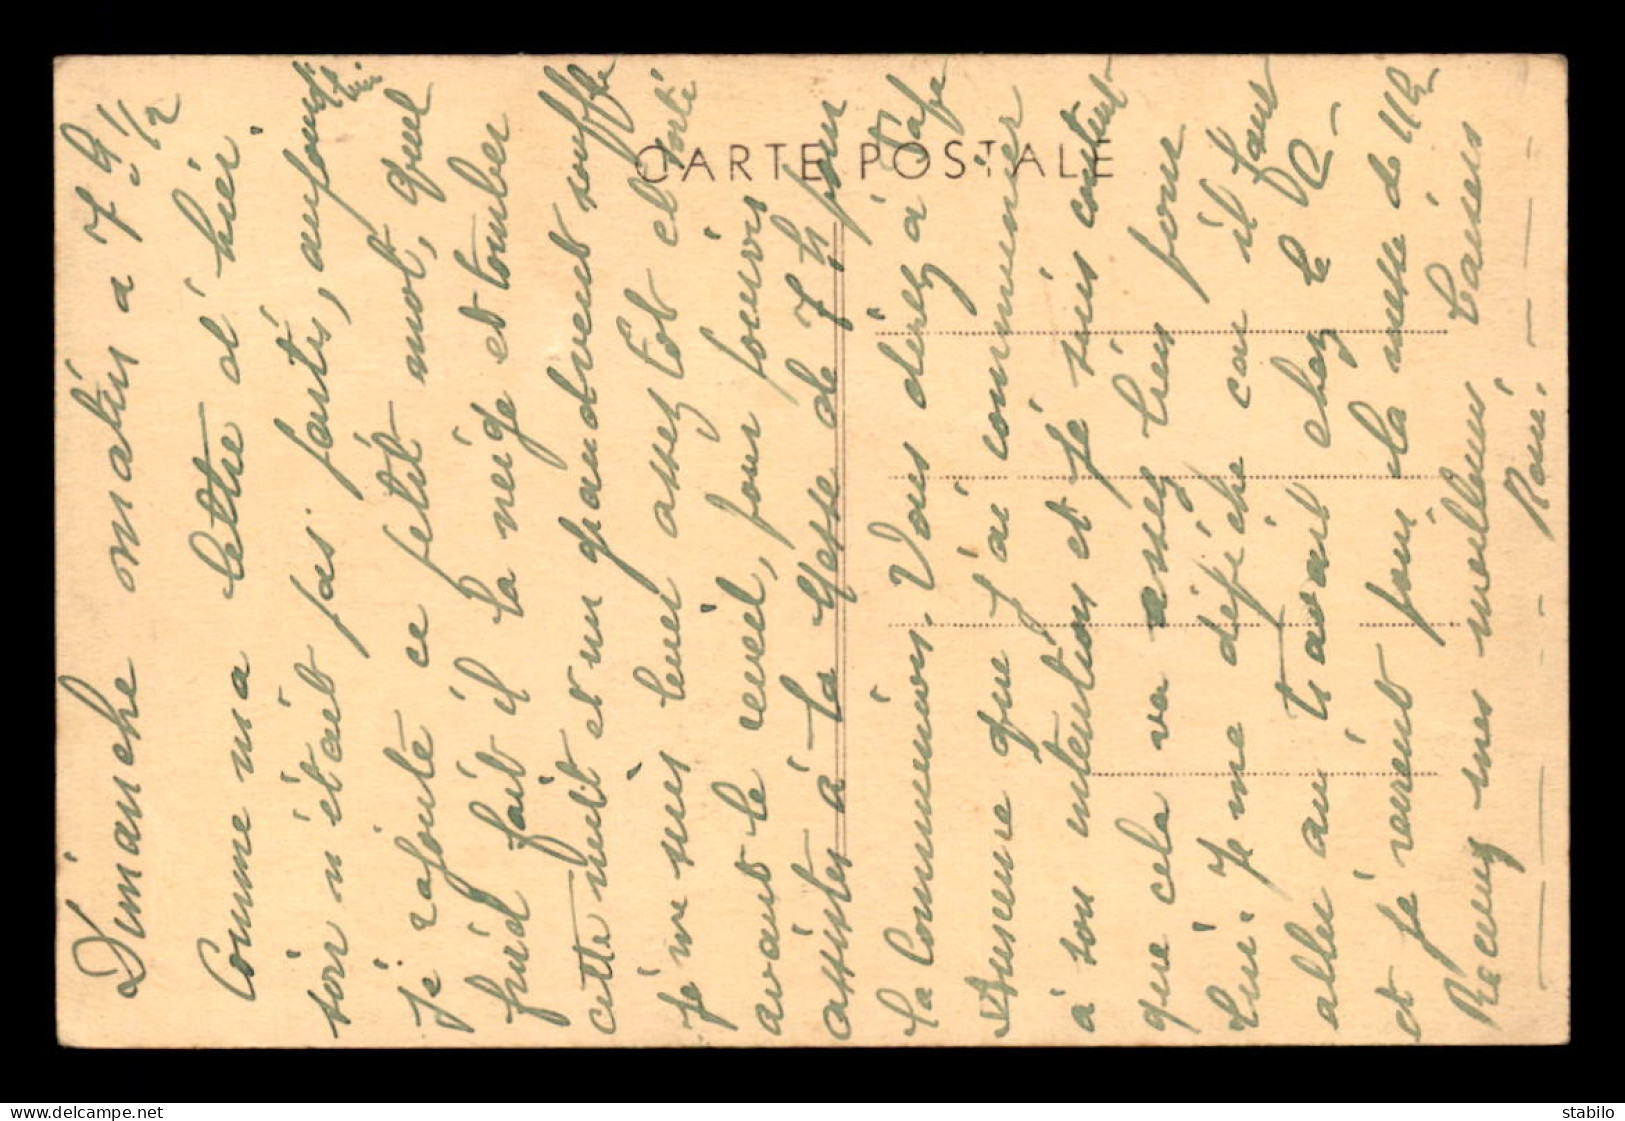 CARTE POSTALE
Dimanche matin a 7 9 1/2
Comme ma lettre d'hier
soir n'était pas partis, aujourd'hui
Je rajoute ce petit mot, quel
froid fait il la neige et tomber
cette nuit et un grand vent souffle
je me suis levé assez tôt
avant le reveil, pour pouvoir
assister à la Messe de 7h pour
la Communion. Vous direz à
que j'ai communier
à son intentions et je suis content
que cela va assez bien pour
lui. Je me dépêche car il faut
aller au travail chez le
et je revient pour la messe de 11h
Recevez mes meilleurs baisers
René.
www.delcampe.net
stabilo